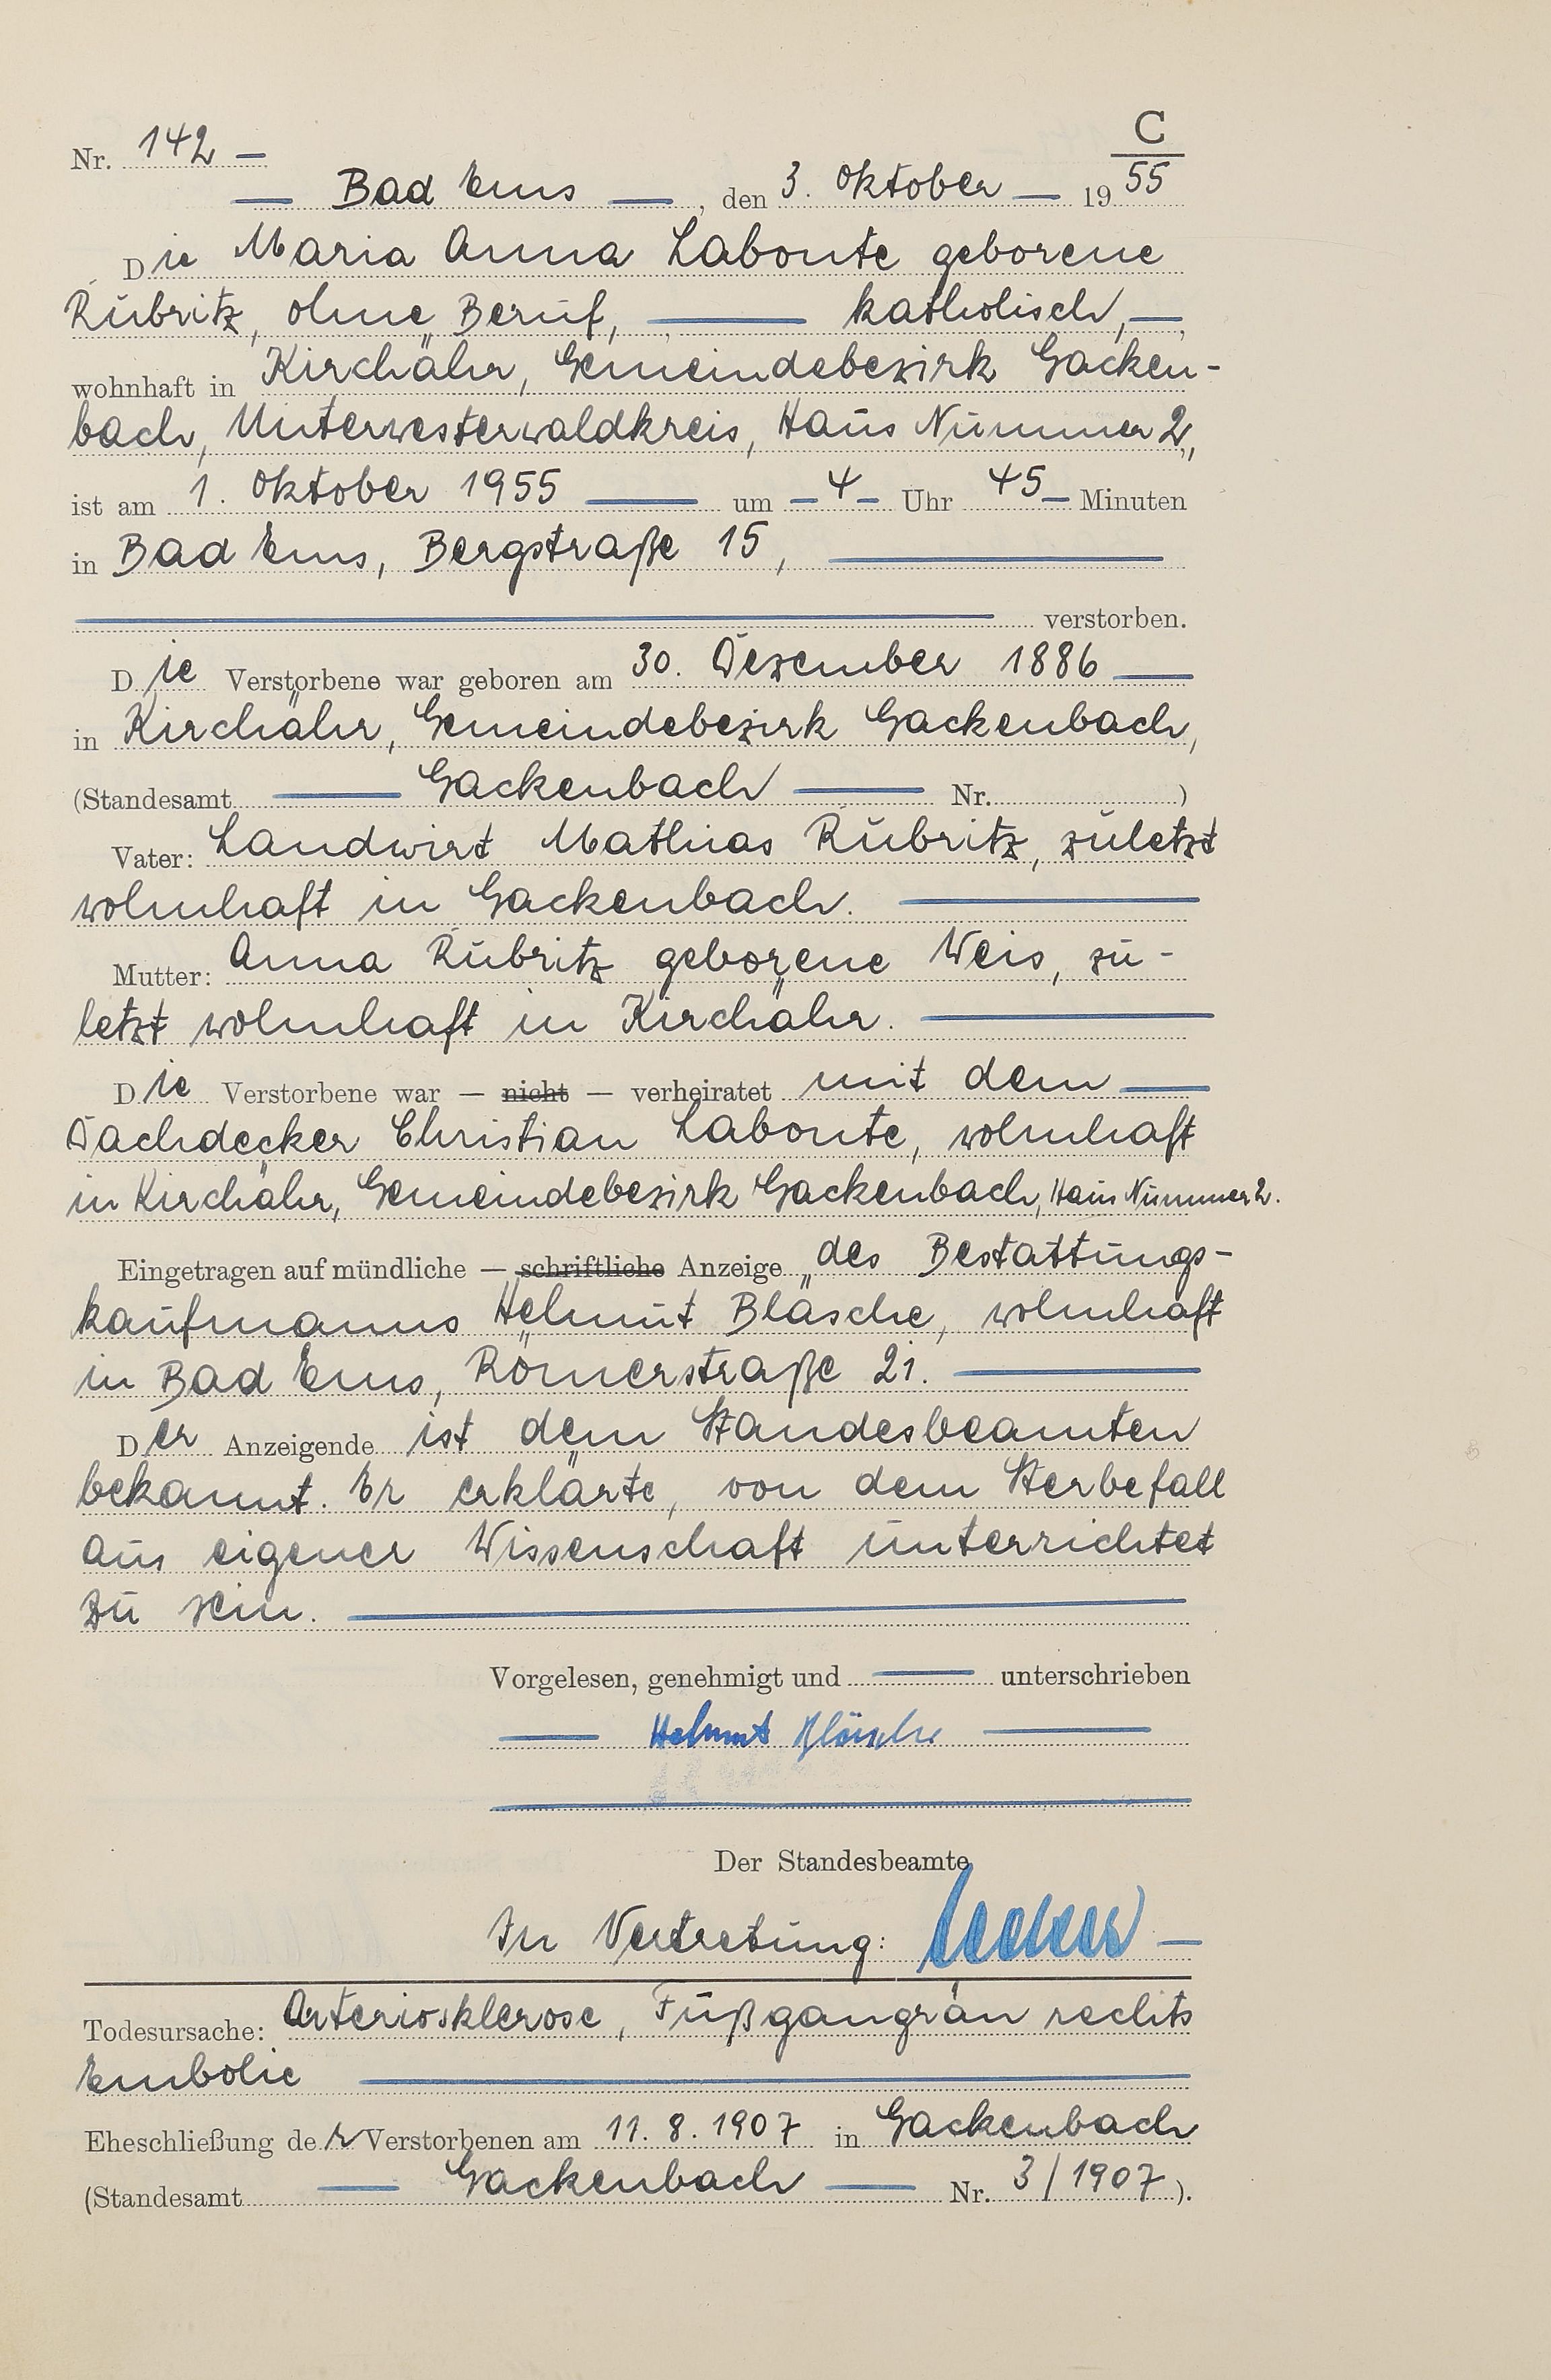 C
Nr. 142 —
— Bad Ems —, den 3. Oktober — 19 55
Die Maria Anna Labonte geborene
Rubritz, ohne Beruf, — katholisch, —,
wohnhaft in Kirchähr, Gemeindebezirk Gacken-
bach, Unterwesterwaldkreis, Haus Nummer 2,
ist am 1. Oktober 1955 — um — 4 — Uhr 45 — Minuten
in Bad Ems, Bergstraße 15, —
— verstorben.
Die Verstorbene war geboren am 30. Dezember 1886 —
in Kirchähr, Gemeindebezirk Gackenbach,
(Standesamt — Gackenbach — Nr. )
Vater: Landwirt Mathias Rubritz, zuletzt
wohnhaft in Gackenbach. —
Mutter: Anna Rubritz geborene Weis, zu-
letzt wohnhaft in Kirchähr. —
Die Verstorbene war — nicht — verheiratet mit dem —
Dachdecker Christian Labonte, wohnhaft
in Kirchähr, Gemeindebezirk Gackenbach, Haus Nummer 2.
Eingetragen auf mündliche — schriftliche Anzeige des Bestattungs-
kaufmanns Helmut Bläsche, wohnhaft
in Bad Ems, Römerstraße 21. —
Der Anzeigende ist dem Standesbeamten
bekannt. Er erklärte, von dem Sterbefall
aus eigener Wissenschaft unterrichtet
zu sein. —
Vorgelesen, genehmigt und — unterschrieben
— Helmut Bläsche —
Der Standesbeamte
In Vertretung: —
Todesursache: Arteriosklerose, Fußgangrän rechts
Embolie —
Eheschließung der Verstorbenen am 11. 8. 1907 in Gackenbach
(Standesamt — Gackenbach — Nr. 3/1907).